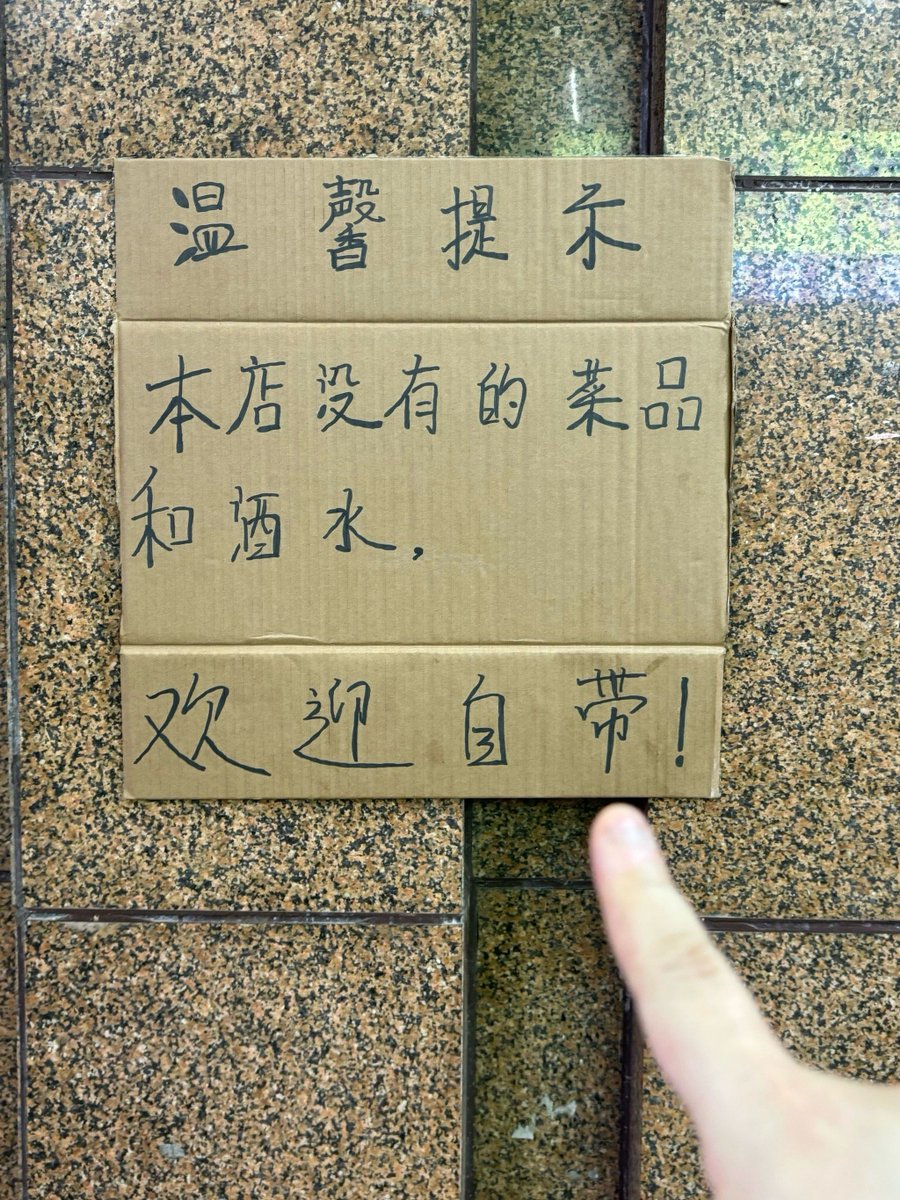 温馨提示
本店没有的菜品
和酒水,
欢迎自带!